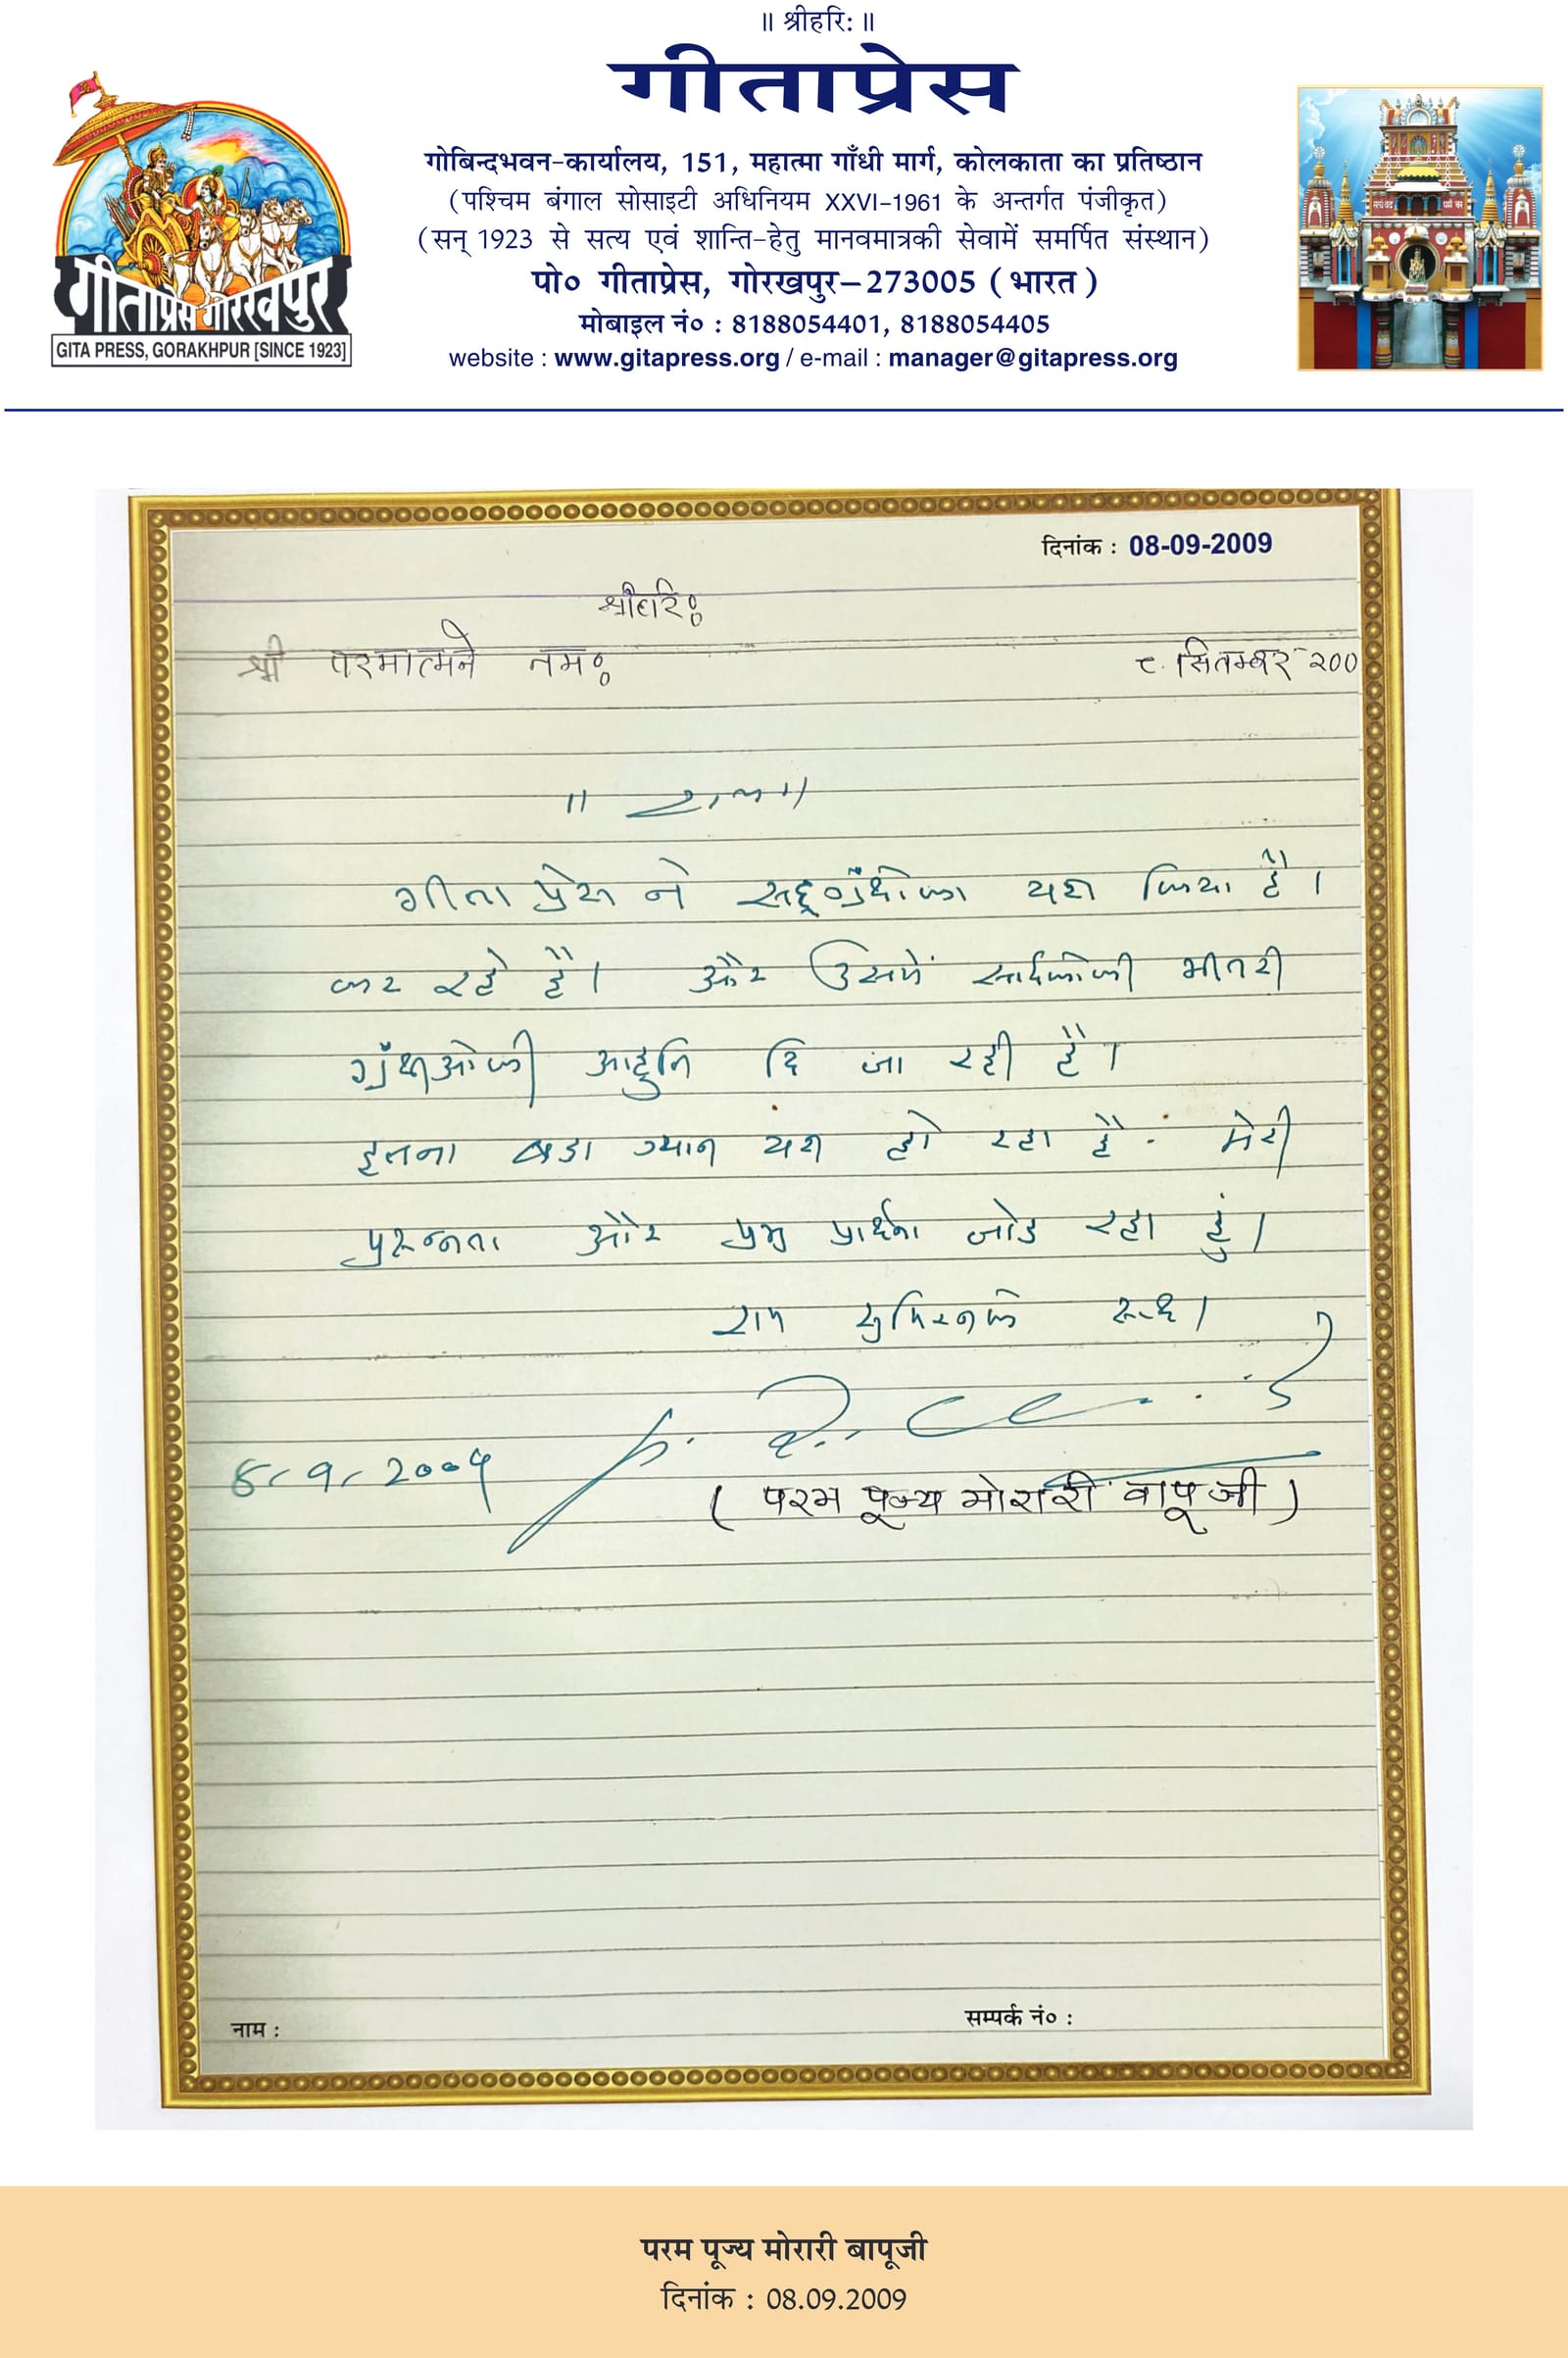 ॥ श्रीहरि: ॥
गीताप्रेस
गोबिन्दभवन-कार्यालय, 151, महात्मा गाँधी मार्ग, कोलकाता का प्रतिष्ठान
(पश्चिम बंगाल सोसाइटी अधिनियम XXVI-1961 के अन्तर्गत पंजीकृत)
(सन् 1923 से सत्य एवं शान्ति-हेतु मानवमात्रकी सेवामें समर्पित संस्थान)
पो० गीताप्रेस, गोरखपुर–273005 (भारत)
मोबाइल नं० : 8188054401, 8188054405
website : www.gitapress.org / e-mail : manager@gitapress.org
गीताप्रेस गोरखपुर
GITA PRESS, GORAKHPUR [SINCE 1923]
दिनांक : 08-09-2009
श्रीहरिः
श्री परमात्मने नमः ८ सितम्बर २००
॥ राम ॥
गीता प्रेस ने सद्ग्रंथोका यज्ञ किया है।
कर रहे है। और उसमें भीतरी
आहुति दि जा रही है।
इतना बडा ग्यान यज्ञ हो रहा है. मेरी
प्रसन्नता और प्रभु प्रार्थना जोड रहा हुं।
राम सुमिरनके साथ।
8/9/2009
(परम पूज्य मोरारी बापू जी)
नाम : सम्पर्क नं० :
परम पूज्य मोरारी बापूजी
दिनांक : 08.09.2009